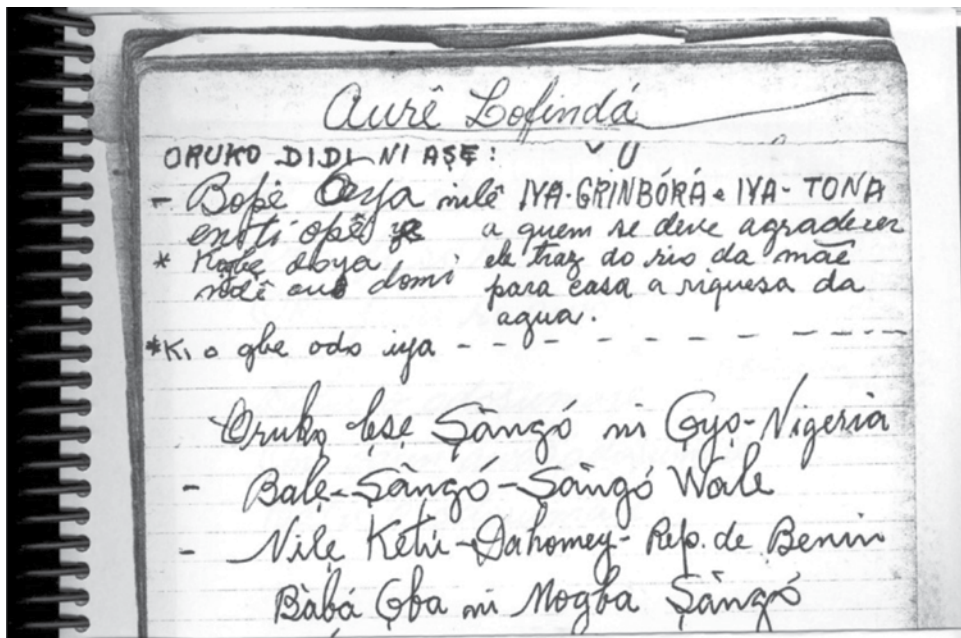 Aurê Lofindá
ORUKO DIDI NI AṢẸ:
- Bopê Oya nilê IYA-GRINBÓRÁ e IYA-TONA
enoti opê a quem se deve agradecer
* Kogbe odoya ele traz do rio da mãe
nodê domi para casa a riquesa da
agua.
*Ki o gbe odo iya - - - - - - - -
Oruko lese Ṣàngó ni Ọyọ-Nigeria
- Balẹ-Ṣàngó-Ṣàngó Wale
- Nilẹ Kétu-Dahomey-Rep. de Benin
Bàbá Ọba ni Mogba Ṣàngó